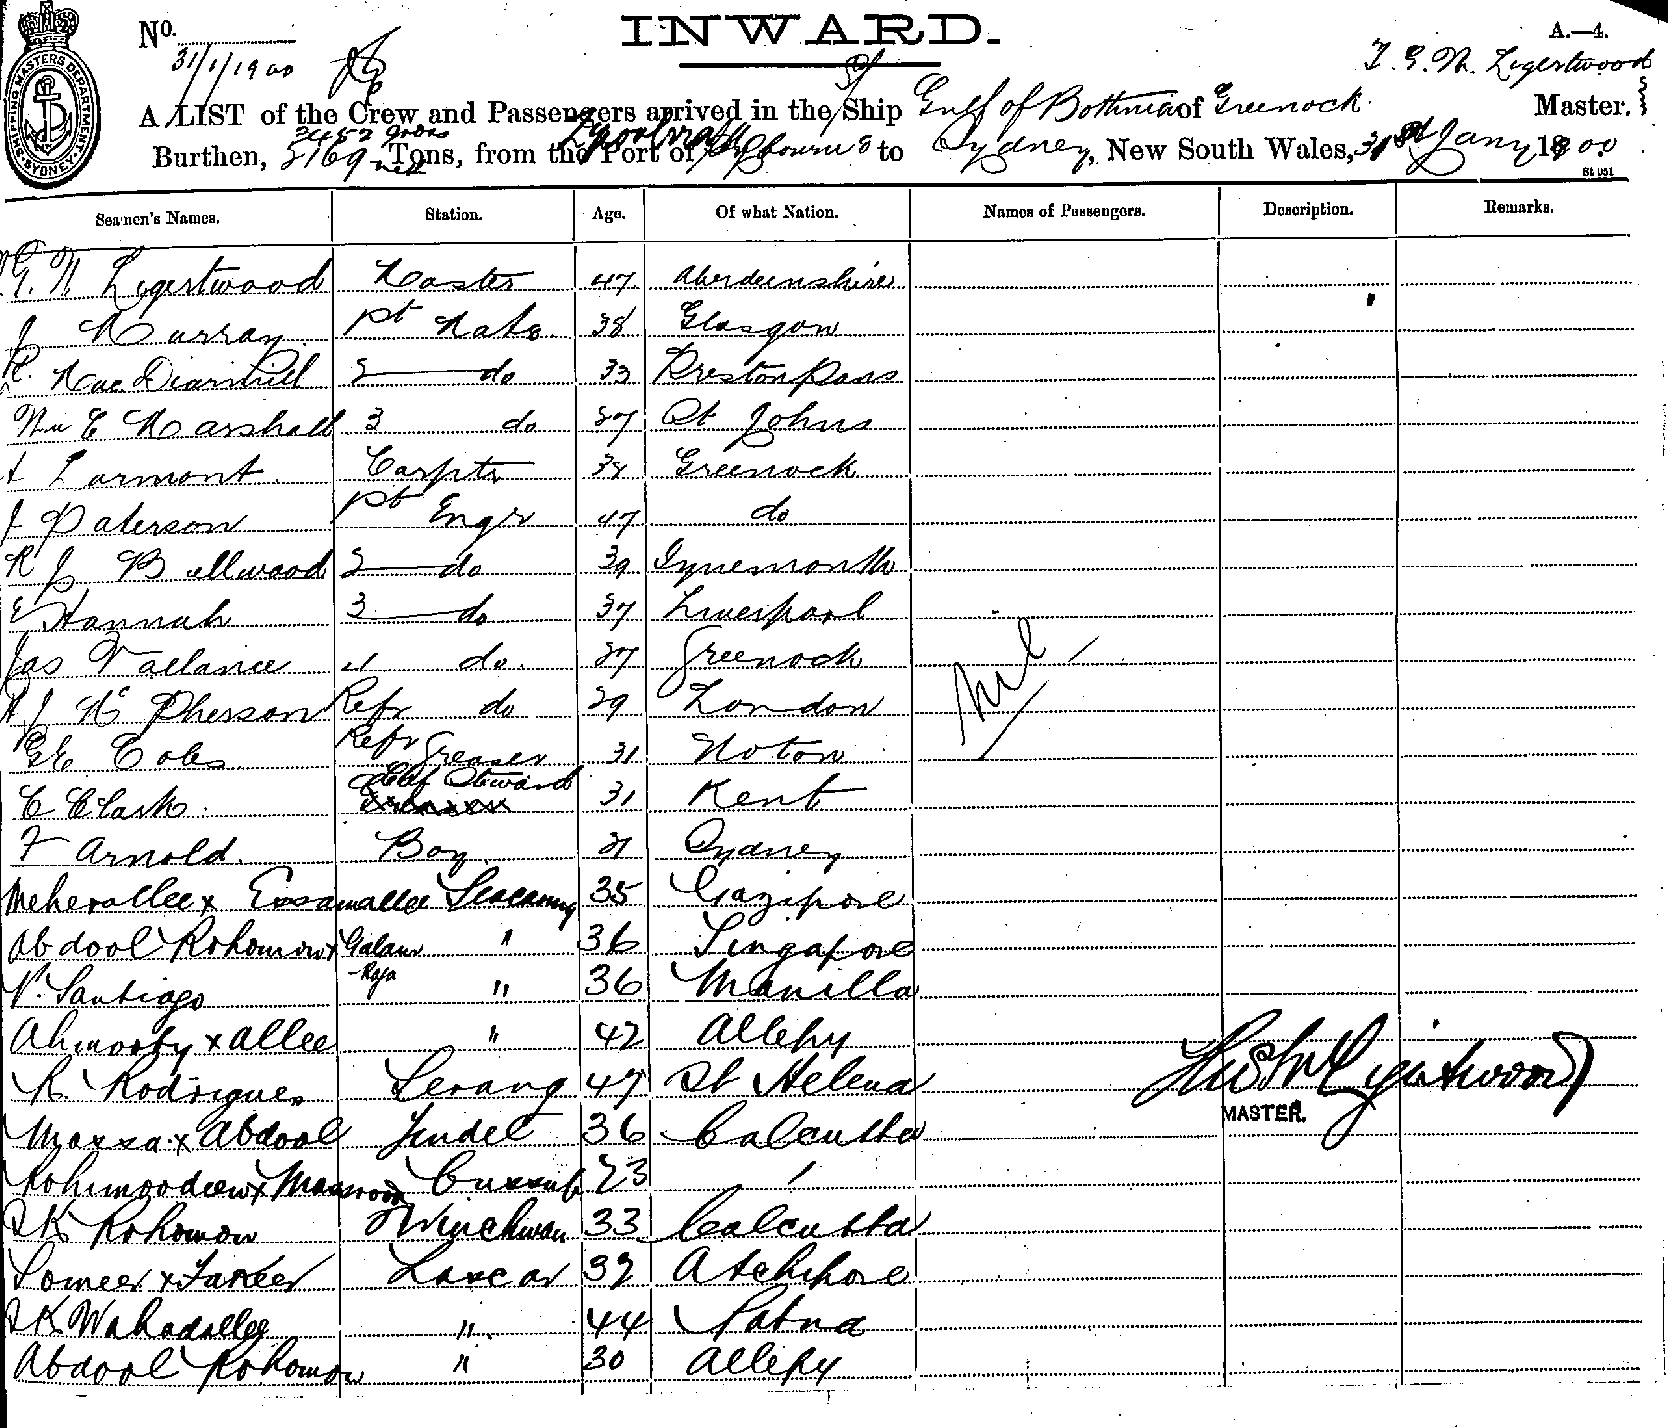 No.
31/1/1900
INWARD.
A.—4.
SHIPPING MASTERS DEPARTMENT. SYDNEY
T. G. W. Ligertwood
A LIST of the Crew and Passengers arrived in the Ship Gulf of Bothnia of Greenock Master.
Burthen, 3452 gross 2169 nett Tons, from the Port of Melbourne to Sydney, New South Wales, 31st Jany 1900.
Seamen's Names. Station. Age. Of what Nation. Names of Passengers. Description. Remarks.
G. W Ligertwood Master 47 Aberdeenshire
J Murray 1st Mate 38 Glasgow
R. MacDiarmid 2 do 33 Prestonpans
Wm C Marshall 3 do 27 St Johns
Larmont Carptr 34 Greenock
J Paterson 1st Engr 47 do
R J Bellwood 2 do 39 Tynemouth
E Hannah 3 do 37 Liverpool
Jas Vallance 4 do. 27 Greenock
J McPherson Refr do 29 London
GE Coles Refr Greaser 31 Noton
Nil
C Clark Chf Steward 31 Kent
F Arnold Boy 21 Sydney
Meherallee x Essamallee Seacunny 35 Gazipore
Abdool Rohomon x Galam Raja " 36 Singapore
P. Santiago " 36 Manilla
Ahmoody x allee " 42 Allepy
R Rodrigues Serang 47 St Helena
MASTER.
Moosa x Abdool Tindel 36 Calcutta
Rohimoodeen x Cussab 23
SK Rohomon Winchman 33 Calcutta
Someer x Fakeer Lascar 39 Atchipore
SK Wahadalley " 44 Patna
Abdool Rohomon " 30 Allepy